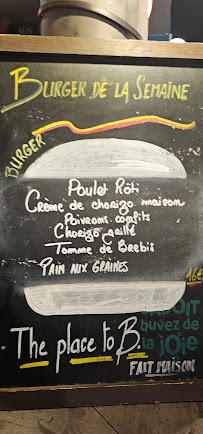 BURGER DE LA SEMAINE
BURGER
Poulet Rôti
Crème de chorizo maison
Poivrons confits
Chorizo grillé
Tomme de Brebis
PAIN AUX GRAINES
16€
buvez de
la JOIE
The place to B.
FAIT MAISON